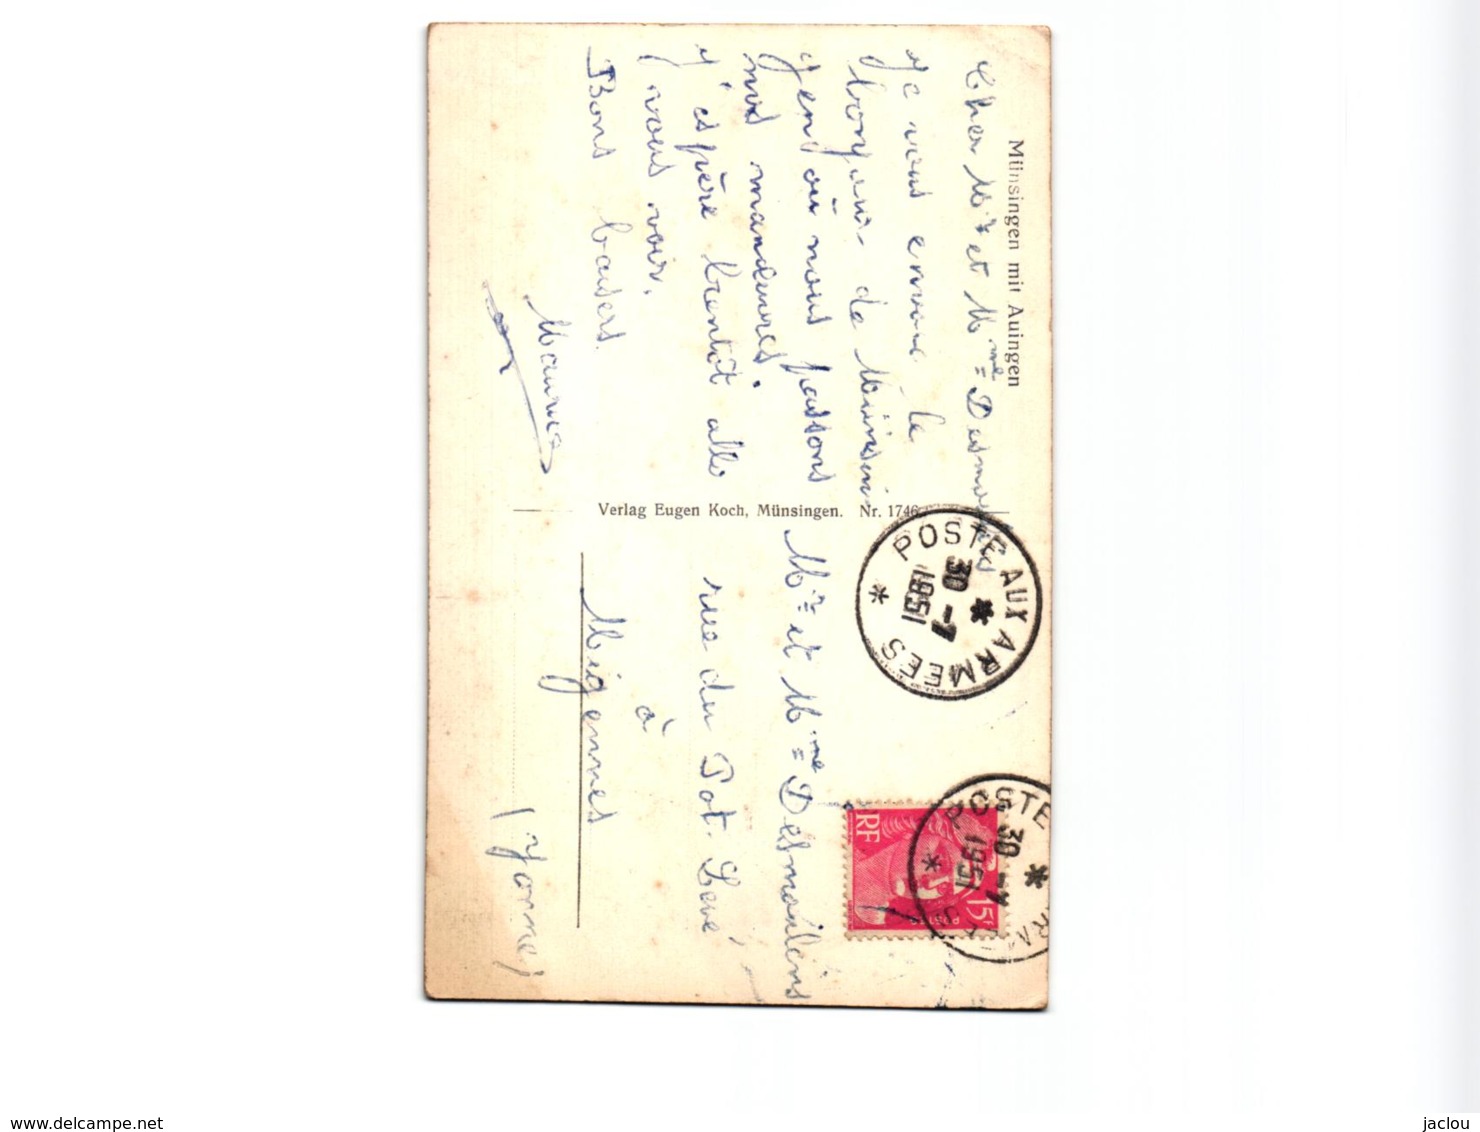 Münsingen mit Auingen
Cher Mr et Mme
Je vous envoie le
bonjour de
où nous passons
nos manœuvres.
J'espère bientôt alle
vous voir.
Bons baisers.
Maurice
Verlag Eugen Koch, Münsingen. Nr. 1746
POSTE AUX ARMEES
30 -7
1951
POSTE
30 -7
1951
RF
15F
POSTES
Mr et Mme
rue du Pot Levé
à
Migennes
(Yonne)
www.delcampe.net
jaclou